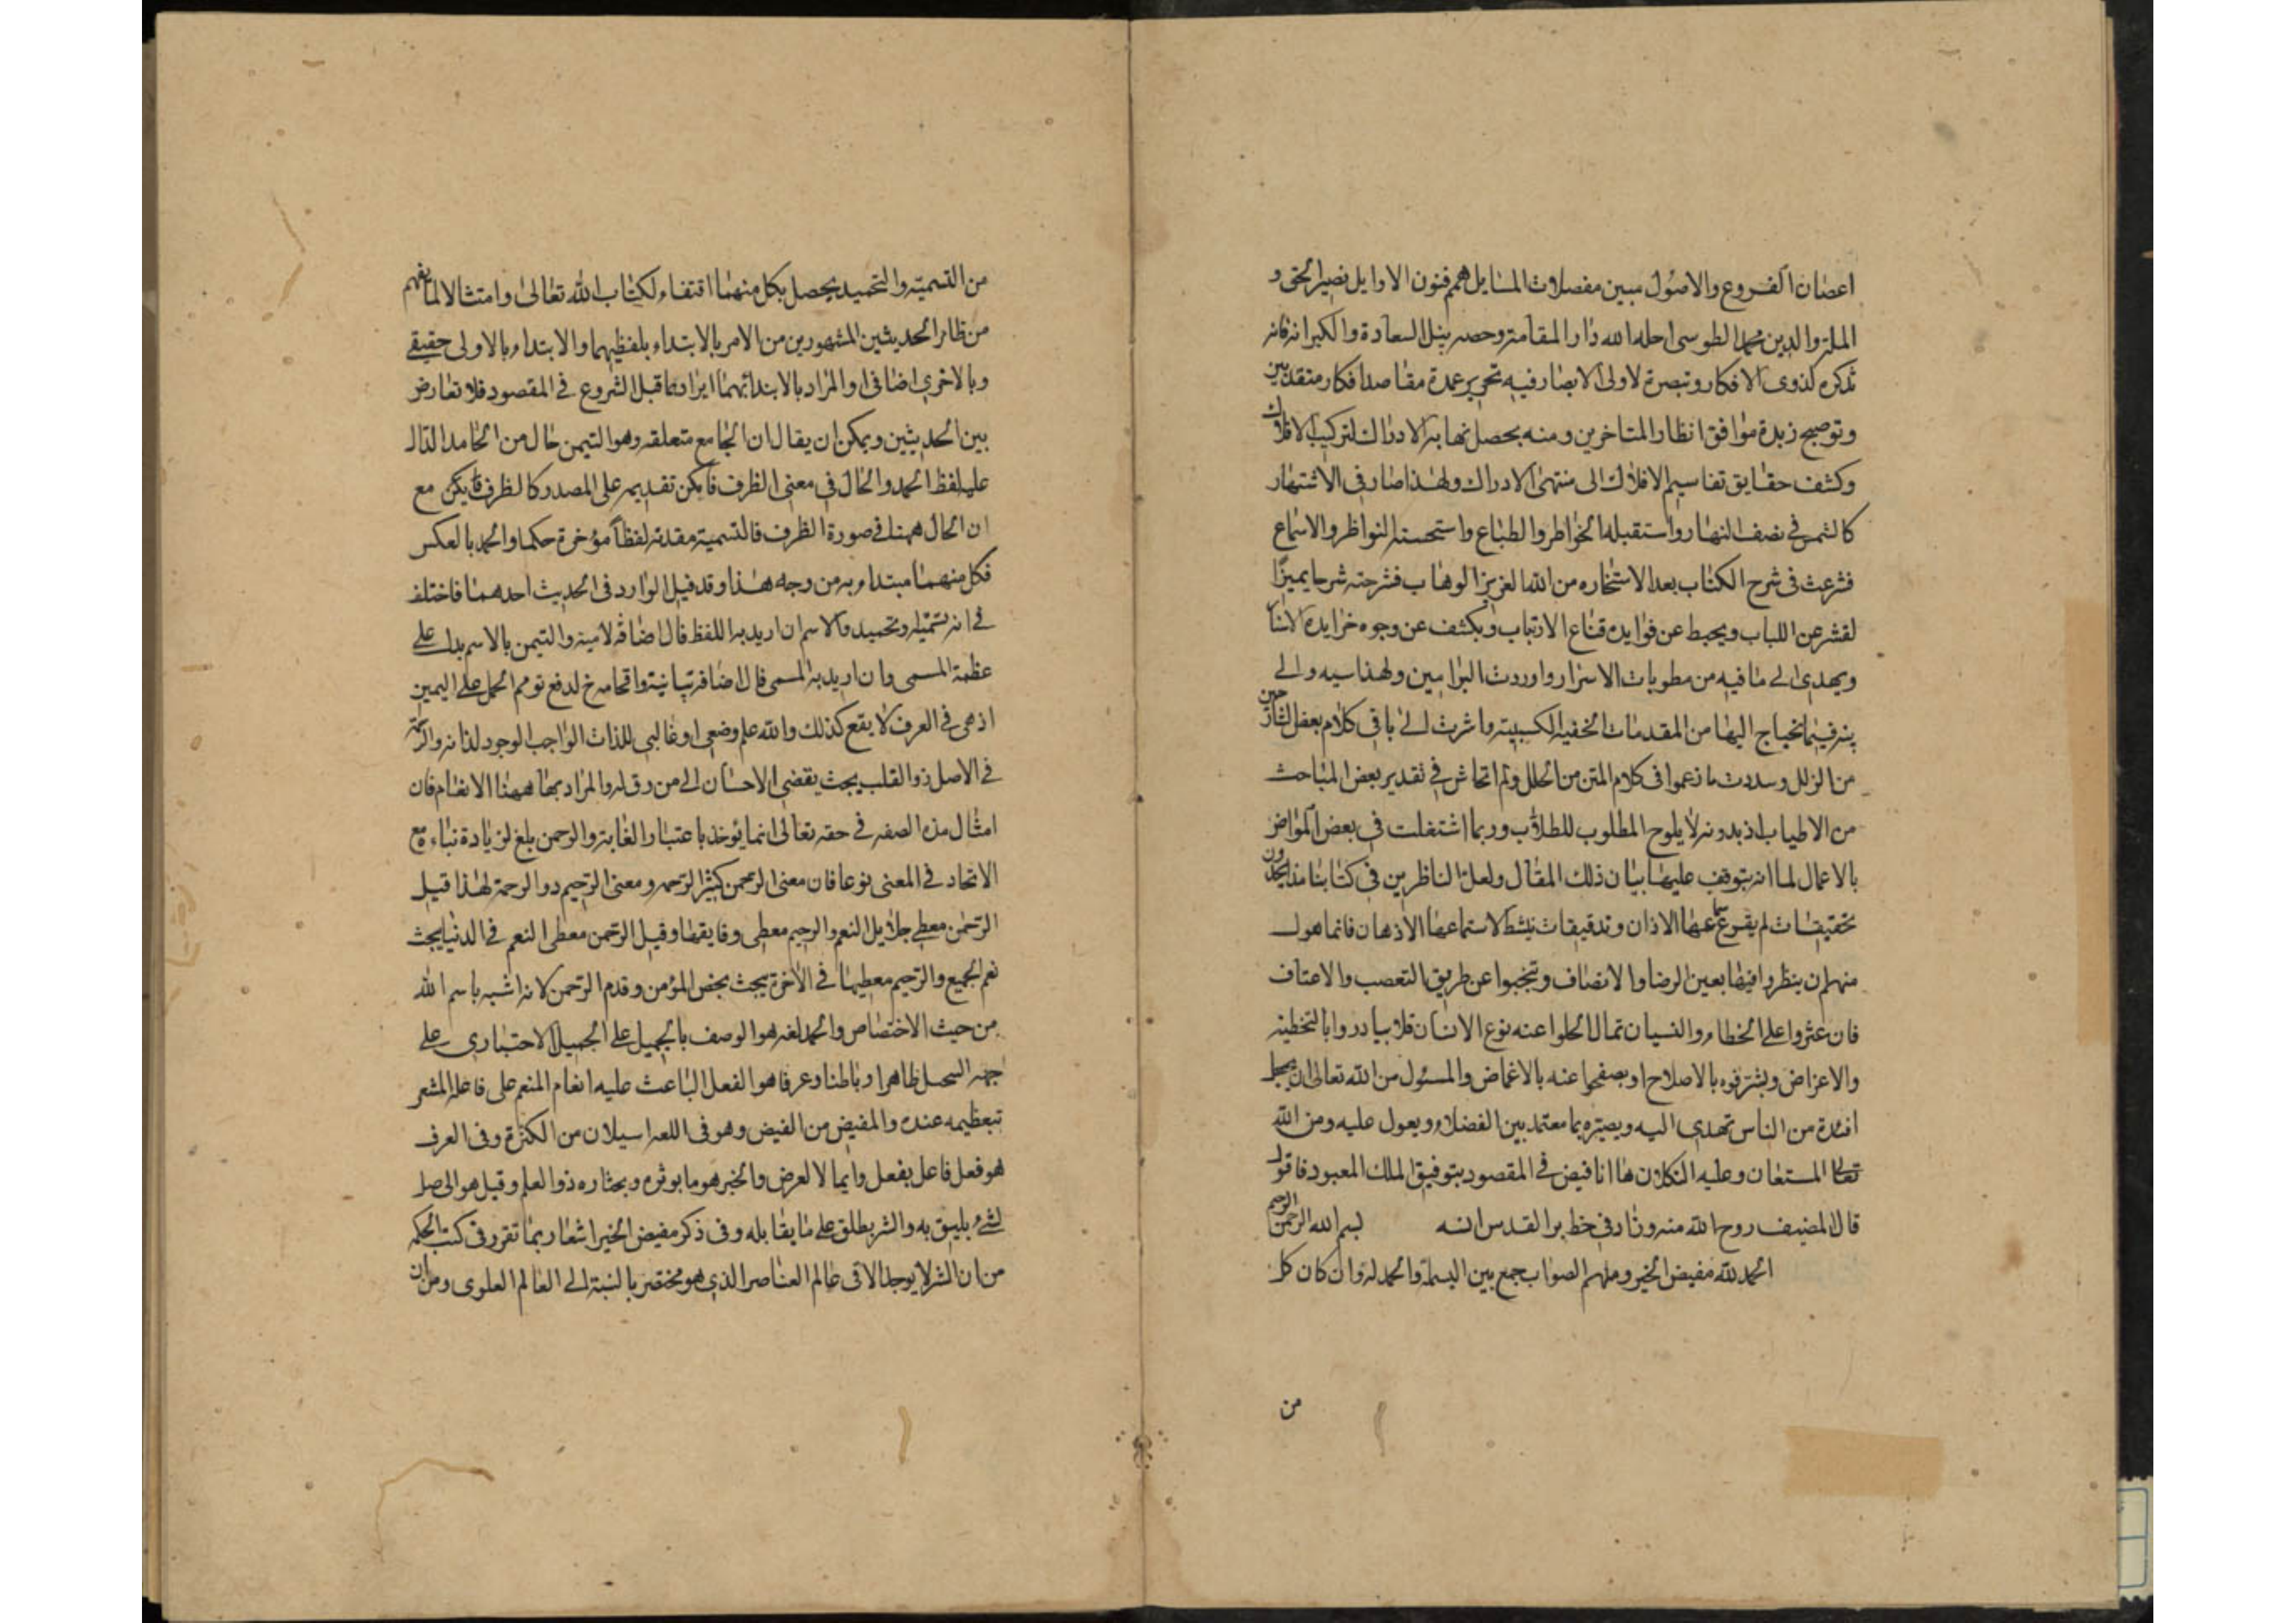 اعضان الفروع والاصول مبين مفصلات المسايل همم فنون الاوايل نصير الحق و
الملة والدين محمد الطوسى احله الله دار المقامة وحصه بنيل السعادة والكرا فانه
تذكرة لذوى الافكار وتبصرة لاولى الابصار فيه تحرير عمدة مقاصد افكار متقدمين
وتوضيح زبدة موافق انظار المتاخرين ومنه يحصل نهاية الادراك لتركيب الافلاك
وكشف حقايق تقاسيم الافلاك الى منتهى الادراك ولهذا صار فى الاشتهار
كالشمس فى نصف النهار واستقبله الخواطر والطباع واستحسنه النواظر والاسماع
فشرعت فى شرح الكتاب بعد الاستخاره من الله العزيز الوهاب فشرحته شرحا يميز
لقشر عن اللباب ويحبط عن فوايده قناع الارتياب ويكشف عن وجوه خرايده
ويهدى الى ما فيه من مطويات الاسرار واوردت البراهين ولهذا سيه والى
فيما يحتاج اليها من المقدمات الخفية الكسبية واشرت الى باقى كلام بعض الشارحين
من الزلل وسددت ما زعموا فى كلام المتن من الخلل ولم اتحاش فى تقدير بعض المباحث
من الاطياب اذ بدونه لا يلوح المطلوب للطلاب وربما اشتغلت فى بعض المواضع
بالاعمال لما انه يتوقف عليها بيان ذلك المقال ولعل الناظرين فى كتابنا هذا يجدون
تحقيقات لم يقرع سماعها الاذان وتدقيقات ينشط لاستماعها الاذهان فانما هول
منهم ان ينظروا فيها بعين الرضا والانصاف ويتجنبوا عن طريق التعصب والاعتاف
فان عثروا على الخطاء والنسيان مما لا يخلوا عنه نوع الانسان فلا يبادروا بالتخطئة
والاعراض ويشرفوه بالاصلاح او يصفحوا عنه بالاغماض والمسئول من الله تعالى ان يجعل
افئدة من الناس تهدى اليه ويصيره مما معتمد بين الفضلاء ويعول عليه ومن الله
تعالى المستعان وعليه التكلان ها انا افيض فى المقصود بتوفيق الملك المعبود فاقول
قال المصنف روح الله منه وزاد فى خطير القدس انسه بسم الله الرحمن الرحيم
الحمد لله مفيض الخير وملهم الصواب جمع بين البسملة والحمد له وان كان كل
من
من التسمية والتحميد يحصل بكل منهما اقتفاء لكتاب الله تعالى وامتثالا لما يفهم
من ظاهر الحديثين المشهورين من الامر بالابتداء بلفظيهما والابتداء بالاولى حقيقى
وبالاخرى اضافى او المراد بالابتدائهما ايرادهما قبل الشروع فى المقصود فلا تعارض
بين الحديثين ويمكن ان يقال ان الجامع متعلقه وهو التيمن حال من الحامد الدال
عليه لفظ الحمد والحال فى معنى الظرف فامكن تقديمه على المصدر كالظرف مع
ان الحال ههنا فى صورة الظرف فالتسمية مقدمة لفظا مؤخرة حكما والحمد بالعكس
فكل منهما مبتداء به من وجه هذا وقد قيل الوارد فى الحديث احدهما فاختلف
فى انه تسمية او تحميد والاسم ان اريد به اللفظ فالاضافة لامية والتيمن بالاسم يدل على
عظمة المسمى وان اريد به المسمى فالاضافة بيانية واقحامه ح لدفع توهم الحمل على اليمين
اذ هى فى العرف لا يقع كذلك والله علم وضعى او غالبى للذات الواجب الوجود لذاته والرحمة
فى الاصل ذو القلب بحيث يقضى الاحسان الى من رق له والمراد بها ههنا الانعام فان
امثال هذه الصفه فى حقه تعالى انما يوخذ باعتبار الغاية والرحمن بلغ لزيادة بناءه مع
الاتحاد فى المعنى نوعا فان معنى الرحمن كثير الرحمه ومعنى الرحيم ذو الرحمة لهذا قيل
الرحمن معطى جلايل النعم والرحيم معطى دقايقها وقيل الرحمن معطى النعم فى الدنيا بحيث
نعم الجميع والرحيم معطيها فى الاخرة بحيث يخص المؤمن وقدم الرحمن لانه اشبه باسم الله
من حيث الاختصاص والحمد لغة هو الوصف بالجميل على الجميل الاختيارى على
جهة التبجيل ظاهرا وباطنا وعرفا هو الفعل الباعث عليه انعام المنعم على فاعله المشعر
تبعظيمه عنده والمفيض من الفيض وهو فى اللغه اسيلان من الكثرة وفى العرف
هو فعل فاعل يفعل دايما لا لعرض والخير هو ما يؤثره ويختاره ذو العلم وقيل هو الحاصل
لشئ يليق به والشر يطلق على ما يقابله وفى ذكر مفيض الخير اشعار بما تقرر فى كتب الحكمه
من ان الشر لا يوجد الا فى عالم العناصر الذى هو مختصر بالنسبة الى العالم العلوى ومن ان